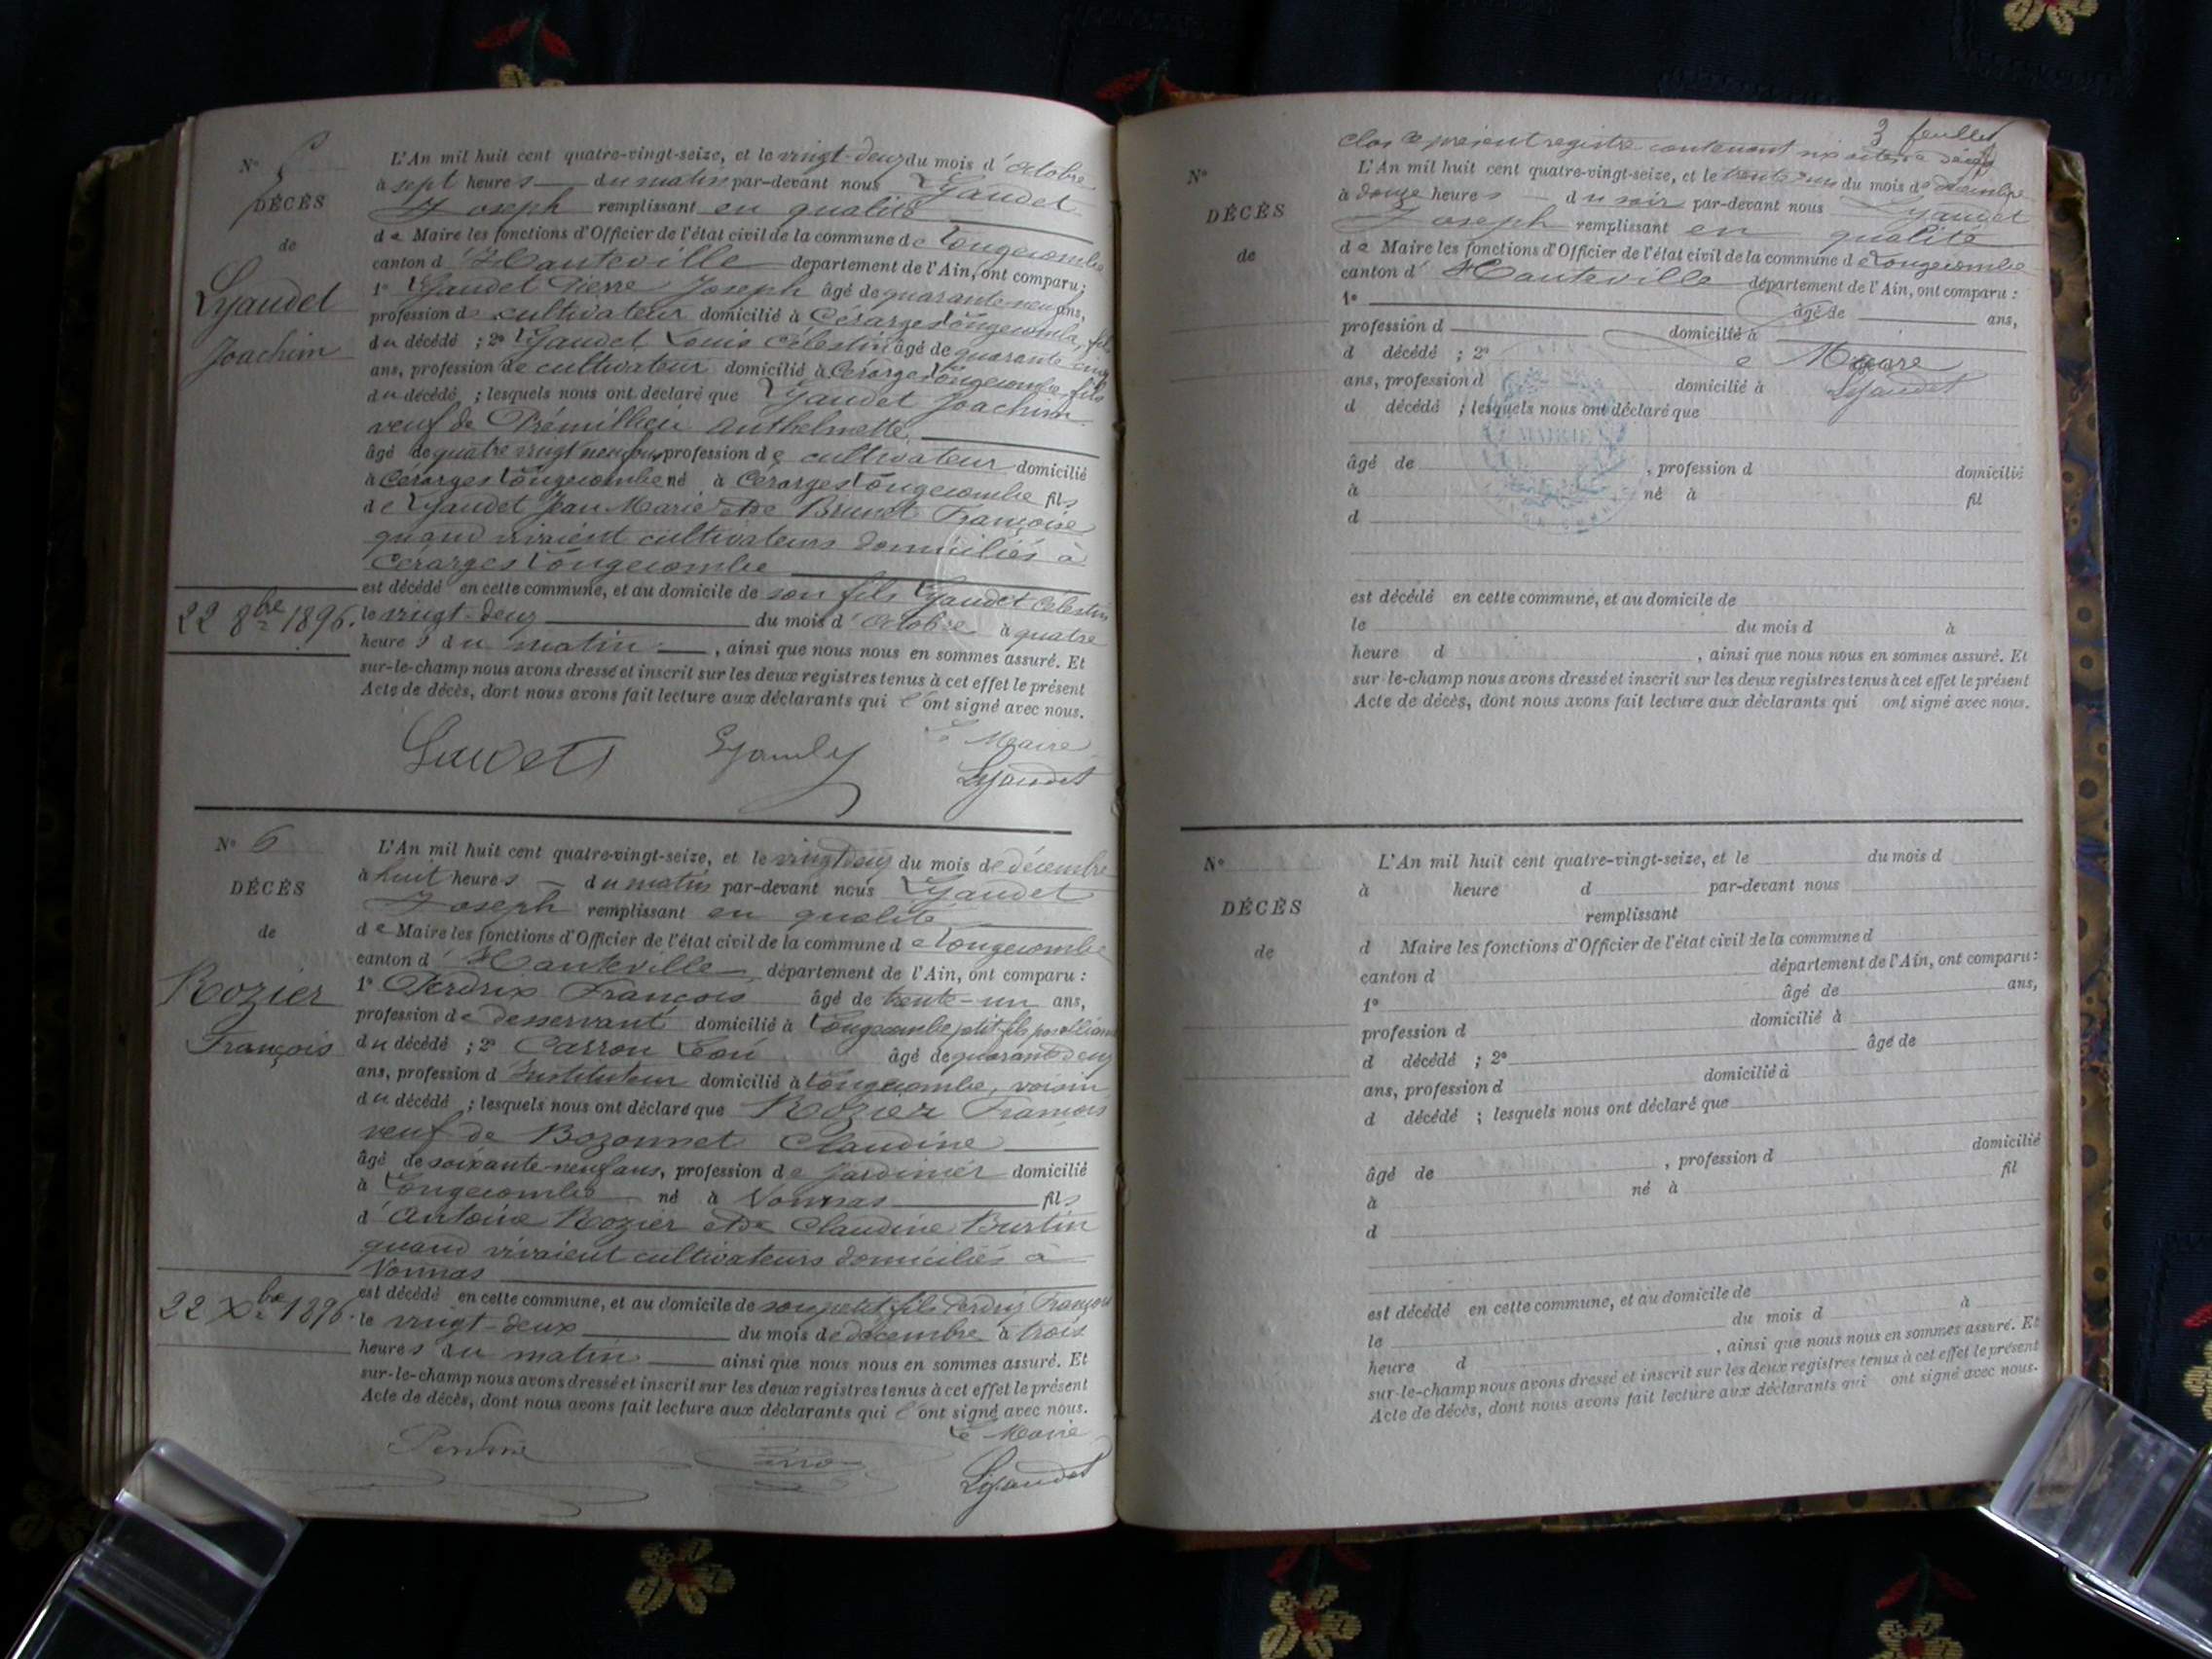 N° 5
DÉCÈS
de
Lyaudet
Joachim
22 8bre 1896.
L'An mil huit cent quatre-vingt-seize, et le vingt-deux du mois d'octobre
à sept heures du matin par-devant nous Lyaudet
Joseph remplissant en qualité
de Maire les fonctions d'Officier de l'état civil de la commune de Longecombe
canton d'Hauteville département de l'Ain, ont comparu;
1° Lyaudet Pierre Joseph âgé de quarante-neuf ans,
profession de cultivateur domicilié à Cérarges Longecombe, fils
du décédé ; 2° Lyaudet Louis Célestin âgé de quarante cinq
ans, profession de cultivateur domicilié à Cérarges Longecombe fils
du décédé ; lesquels nous ont déclaré que Lyaudet Joachim
veuf de Prémillieu Anthelmette
âgé de quatre vingt neuf ans, profession de cultivateur domicilié
à Cérarges Longecombe né à Cérarges Longecombe fils
de Lyaudet Jean Marie et de Brunet Françoise
quand vivaient cultivateurs domiciliés à
Cérarges Longecombe
est décédé en cette commune, et au domicile de son fils Lyaudet Célestin
le vingt-deux du mois d'octobre à quatre
heures du matin, ainsi que nous nous en sommes assuré. Et
sur-le-champ nous avons dressé et inscrit sur les deux registres tenus à cet effet le présent
Acte de décès, dont nous avons fait lecture aux déclarants qui l'ont signé avec nous.
Le Maire
Lyaudet
N° 6
DÉCÈS
de
Rozier
François
22 Xbre 1896.
L'An mil huit cent quatre-vingt-seize, et le vingt deux du mois de décembre
à huit heures du matin par-devant nous Lyaudet
Joseph remplissant en qualité
de Maire les fonctions d'Officier de l'état civil de la commune de Longecombe
canton d'Hauteville département de l'Ain, ont comparu :
1° Perdrix François âgé de trente-un ans,
profession de desservant domicilié à Longecombe petit fils par alliance
du décédé ; 2° Carron âgé de quarante deux
ans, profession d'Instituteur domicilié à Longecombe, voisin
du décédé ; lesquels nous ont déclaré que Rozier François
veuf de Bozonnet Claudine
âgé de soixante-neuf ans, profession de jardinier domicilié
à Longecombe né à Vonnas fils
d'Antoine Rozier et de Claudine Burtin
quand vivaient cultivateurs domiciliés à
Vonnas
est décédé en cette commune, et au domicile de son petit fils Perdrix François
le vingt-deux du mois de décembre à trois
heures du matin ainsi que nous nous en sommes assuré. Et
sur-le-champ nous avons dressé et inscrit sur les deux registres tenus à cet effet le présent
Acte de décès, dont nous avons fait lecture aux déclarants qui l'ont signé avec nous.
Le Maire
Lyaudet
3 feuillet
Clos le présent registre contenant six actes de décès
N°
DÉCÈS
de
L'An mil huit cent quatre-vingt-seize, et le trente-un du mois de décembre
à douze heures du soir par-devant nous Lyaudet
Joseph remplissant en qualité
de Maire les fonctions d'Officier de l'état civil de la commune de Longecombe
canton d'Hauteville département de l'Ain, ont comparu :
1° âgé de ans,
profession d domicilié à
d décédé ; 2° Le Maire
ans, profession d domicilié à Lyaudet
d décédé ; lesquels nous ont déclaré que
MAIRIE
âgé de , profession d domicilié
à né à fil
d
est décédé en cette commune, et au domicile de
le du mois d à
heure d , ainsi que nous nous en sommes assuré. Et
sur-le-champ nous avons dressé et inscrit sur les deux registres tenus à cet effet le présent
Acte de décès, dont nous avons fait lecture aux déclarants qui ont signé avec nous.
N°
DÉCÈS
de
L'An mil huit cent quatre-vingt-seize, et le du mois d
à heure d par-devant nous
remplissant
d Maire les fonctions d'Officier de l'état civil de la commune d
canton d département de l'Ain, ont comparu :
1° âgé de ans,
profession d domicilié à
d décédé ; 2° âgé de
ans, profession d domicilié à
d décédé ; lesquels nous ont déclaré que
âgé de , profession d domicilié
à né à fil
d
est décédé en cette commune, et au domicile de
le du mois d à
heure d , ainsi que nous nous en sommes assuré. Et
sur-le-champ nous avons dressé et inscrit sur les deux registres tenus à cet effet le présent
Acte de décès, dont nous avons fait lecture aux déclarants qui ont signé avec nous.